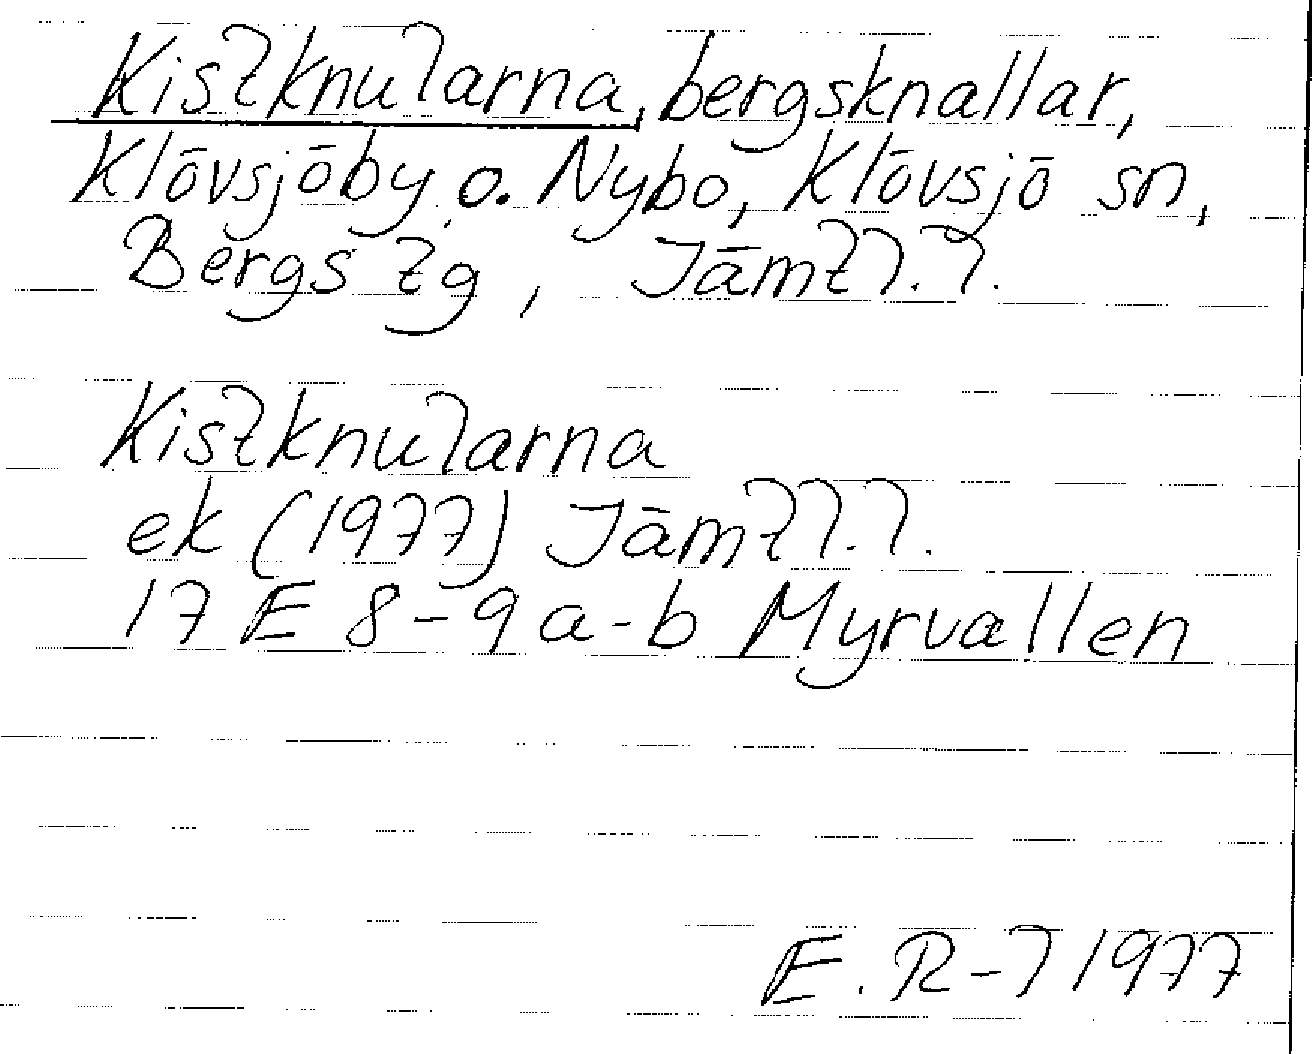 Kistknularna, bergsknallar,
Klövsjöby o. Nybo, Klövsjö sn,
Bergs tg, Jämtl.l.
Kistknularna
ek (1977) Jämtl.l.
17 E 8-9 a-b Myrvallen
E.R-l 1977